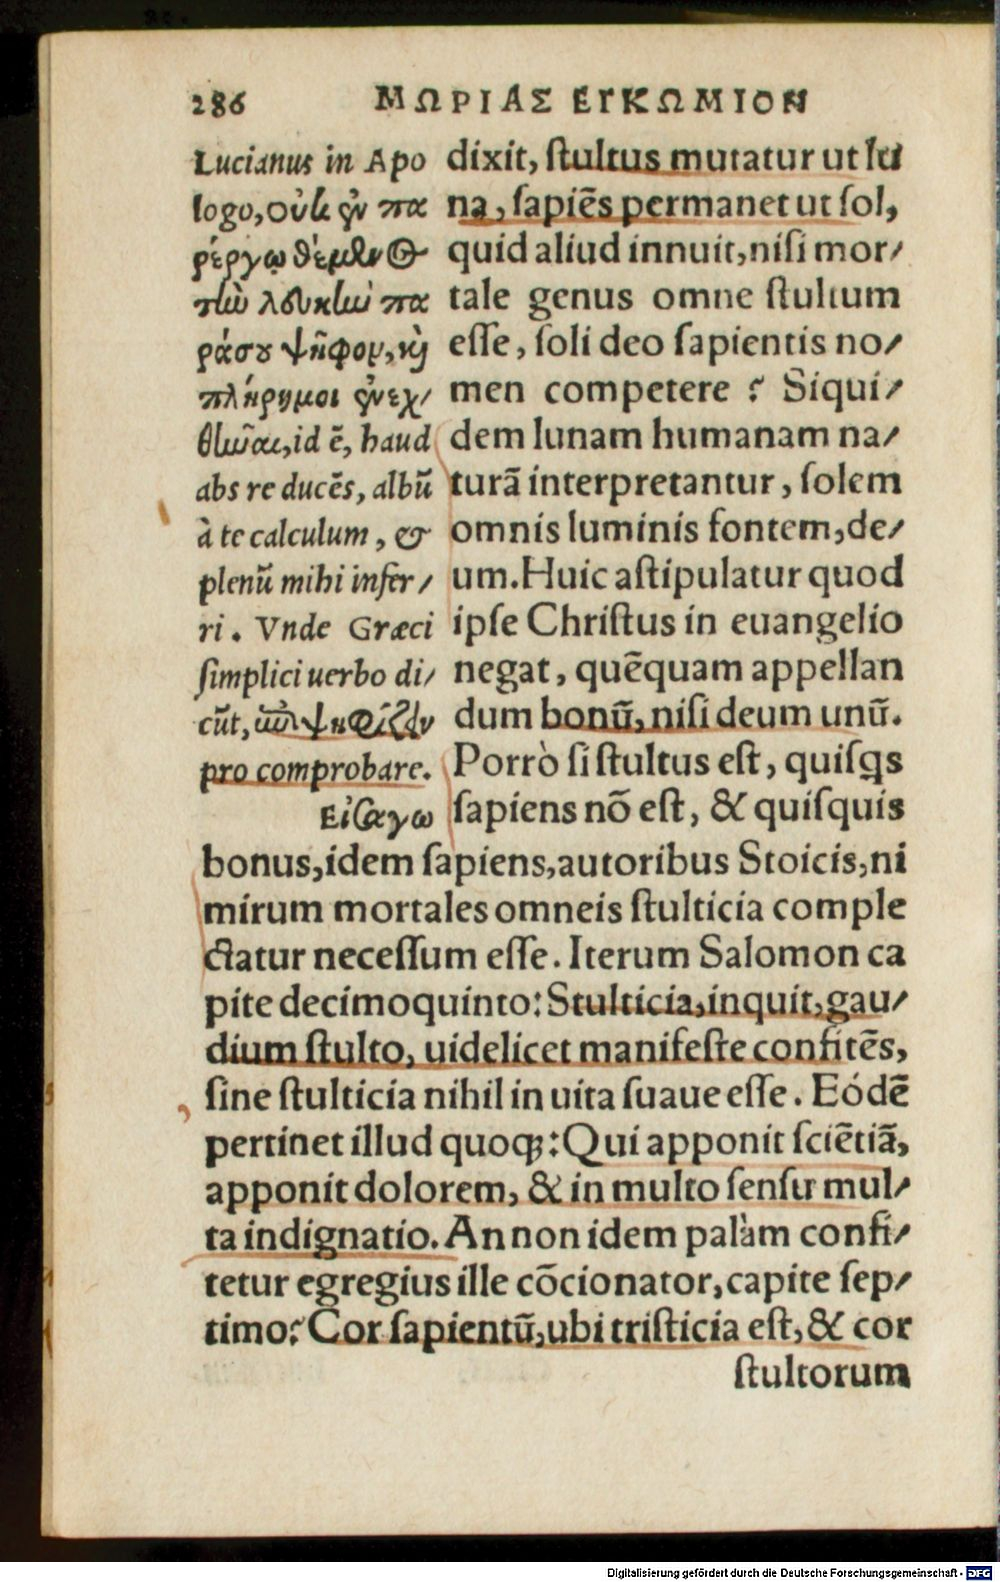 286 ΜΩΡΙΑΣ ΕΓΚΩΜΙΟΝ
Lucianus in Apo
logo, οὐκ ἐν πα
ρέργῳ θέμενος
τὴν λευκὴν πα
ράσου ψῆφον, καὶ
πλήρη μοι ἐνεχ/
θῆναι, id ẽ, haud
abs re ducẽs, albũ
à te calculum, &
plenũ mihi infer/
ri. Vnde Græci
simplici uerbo di/
cũt, ἐπιψηφίζειν
pro comprobare.
Εἰσαγω
dixit, ſtultus mutatur ut lu
na, ſapiẽs permanet ut ſol,
quid aliud innuit, niſi mor/
tale genus omne ſtultum
eſſe, ſoli deo ſapientis no/
men competere ? Siqui/
dem lunam humanam na/
turã interpretantur, ſolem
omnis luminis fontem, de/
um. Huic aſtipulatur quod
ipſe Chriſtus in euangelio
negat, quẽquam appellan
dum bonũ, niſi deum unũ.
Porrò ſi ſtultus eſt, quiſꝗs
ſapiens nõ eſt, & quiſquis
bonus, idem ſapiens, autoribus Stoicis, ni
mirum mortales omneis ſtulticia comple
ctatur neceſſum eſſe. Iterum Salomon ca
pite decimoquinto: Stulticia, inquit, gau/
dium ſtulto, uidelicet manifeſte confitẽs,
ſine ſtulticia nihil in uita ſuaue eſſe. Eódẽ
pertinet illud quoq;: Qui apponit ſciẽtiã,
apponit dolorem, & in multo ſenſu mul/
ta indignatio. An non idem palàm confi/
tetur egregius ille cõcionator, capite ſep/
timo? Cor ſapientũ, ubi triſticia eſt, & cor
ſtultorum
Digitalisierung gefördert durch die Deutsche Forschungsgemeinschaft - DFG